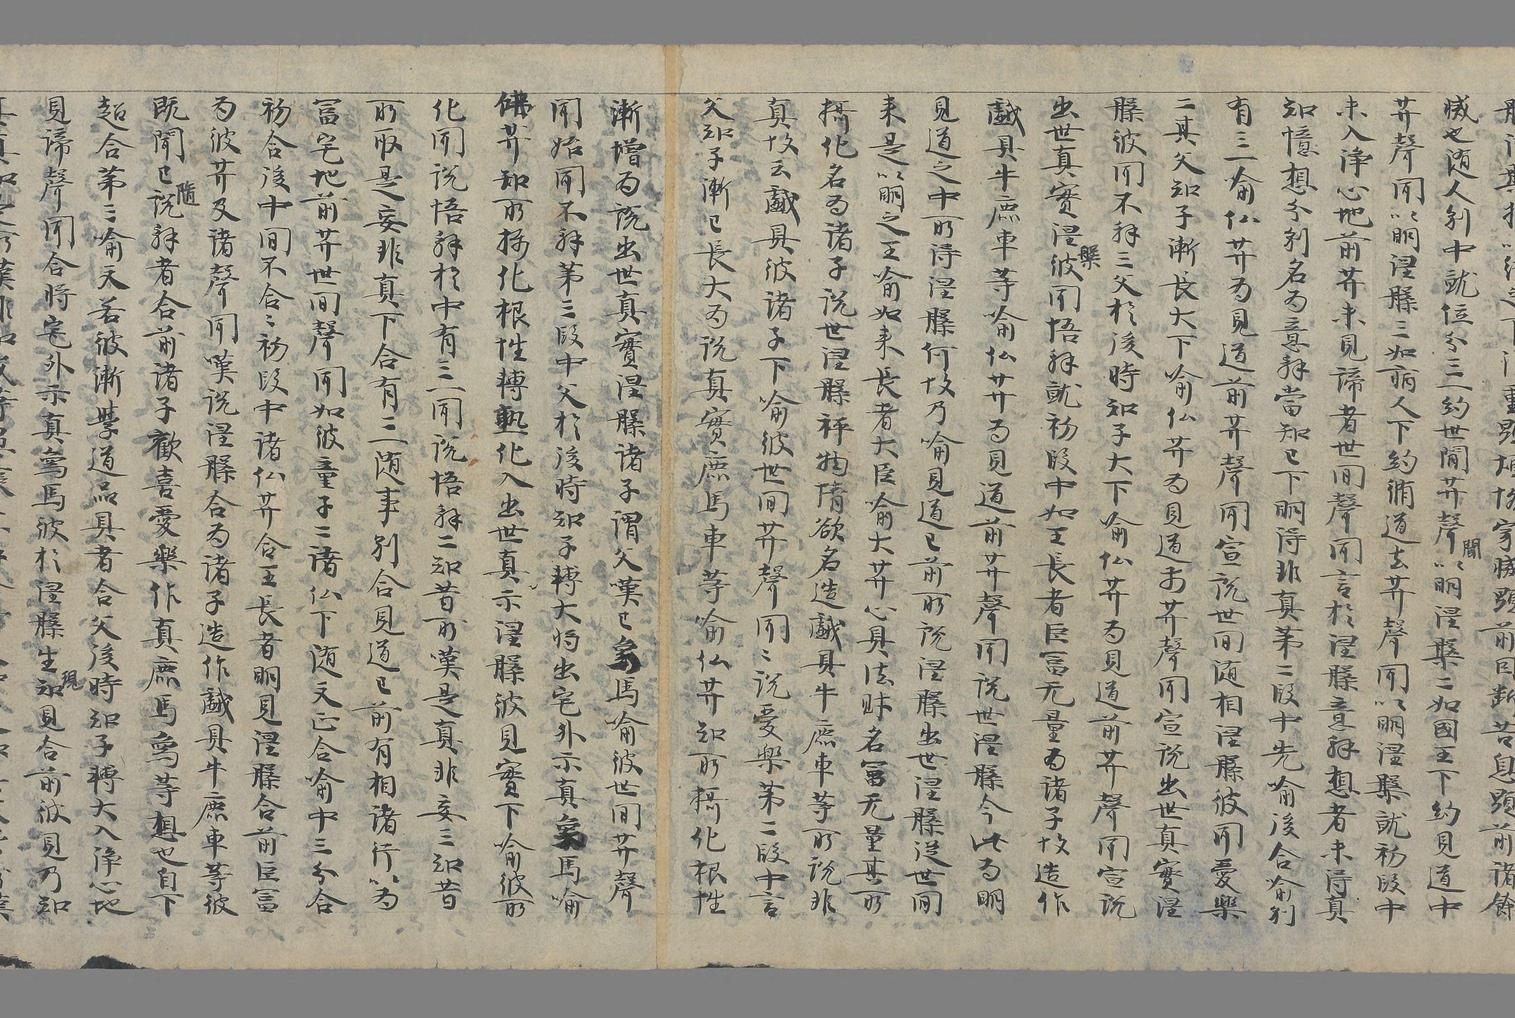 滅也随人別中就位分三一約世間菩聲聞以明涅槃二如國王下約見道中
菩聲聞以明涅槃三如病人下約脩道去菩聲聞以明涅槃就初段中
未入浄心地前菩未見諦者世間聲聞言於涅槃意解想者未得真
知憶想分別名為意解當知已下明得非真第二段中先喻後合喻別
有三一喻仏菩為見道前菩聲聞宣説世間随相涅槃彼聞愛樂
二其父知子漸長大下喻仏菩為見道前菩聲聞宣説出世真實涅
槃彼聞不解三父於後時知子大下喻仏菩為見道前菩聲聞宣説
出世真實涅槃彼聞悟解就初段中如王長者臣富无量為諸子故造作
戯具牛鹿車等喻仏菩為見道前菩聲聞説世涅槃今此為明
見道之中所得涅槃何故乃喻見道已前所説涅槃出世涅槃従世間
来是以明之王喻如来長者大臣喻大菩心具法財名富无量其所
攝化名為諸子説世涅槃稱物情欲名造戯具牛鹿車等所説非
真故云戯具彼諸子下喻彼世間菩聲聞聞説愛樂第二段中言
父知子漸已長大為説真實鹿馬車等喻仏菩知所攝化根性
漸增為説出世真實涅槃諸子謂父嘆已象馬喻彼世間菩聲
聞始聞不解第三段中父於後時知子轉大將出宅外示真象馬喻
佛菩知所攝化根性轉熟化入出世真示涅槃彼見實下喻彼所
化聞説悟解於中有三一聞説悟解二知昔所嘆是真非妄三知昔
所取是妄非真下合有二随事別合見道已前有相諸行以為
冨宅地前菩世間聲聞如彼童子二諸仏下随文正合喻中三分合
初合後中間不合合初段中諸仏菩合王長者明見涅槃合前臣富
為彼菩及諸聲聞嘆説涅槃合為諸子造作戯具牛鹿車等彼
既聞已随説解者合前諸子歡喜愛樂作真鹿馬象等想也自下
超合第三喻文若彼漸學道品具者合父後時知子轉大入浄心地
見諦聲聞合將宅外示真象馬彼於涅槃生現知見合前彼見乃知